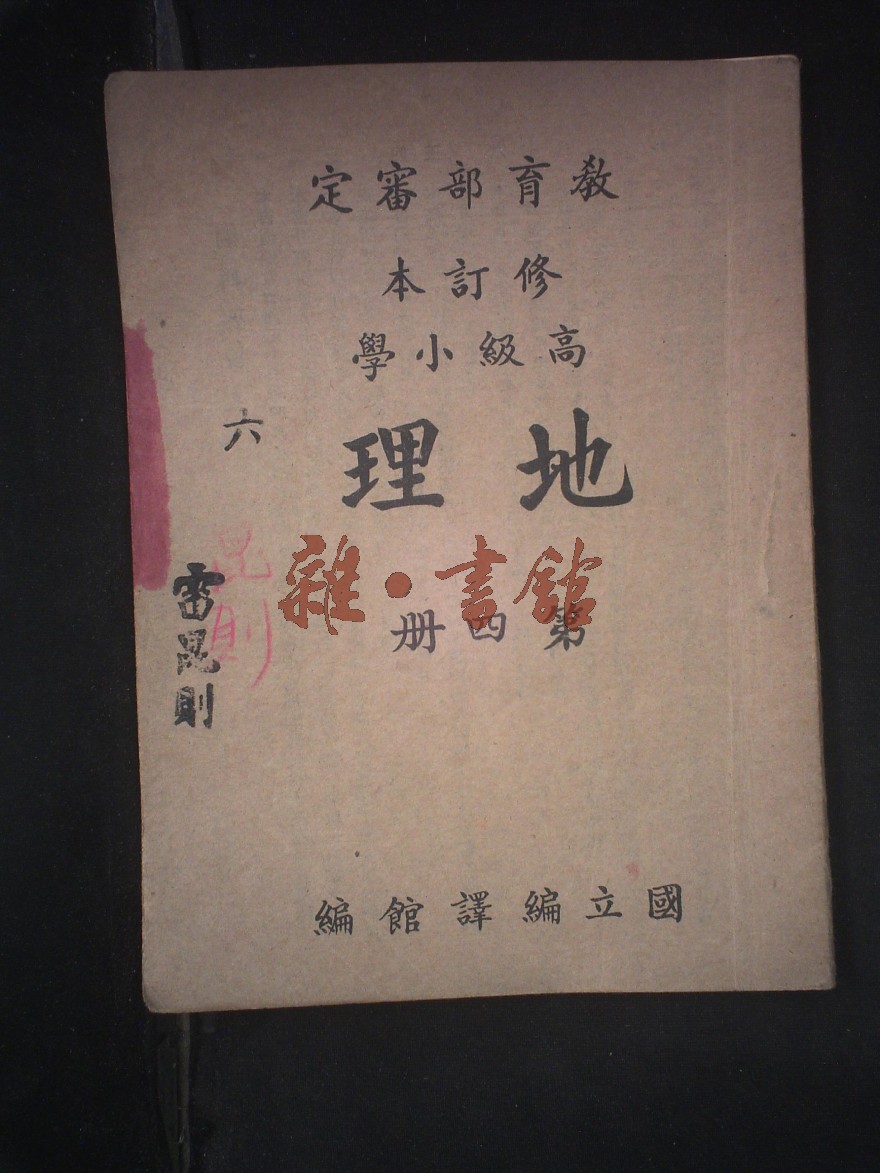 教育部審定
修訂本
高級小學
地理
第四册
六
雷昆則
昆則
雜·書館
國立編譯館編